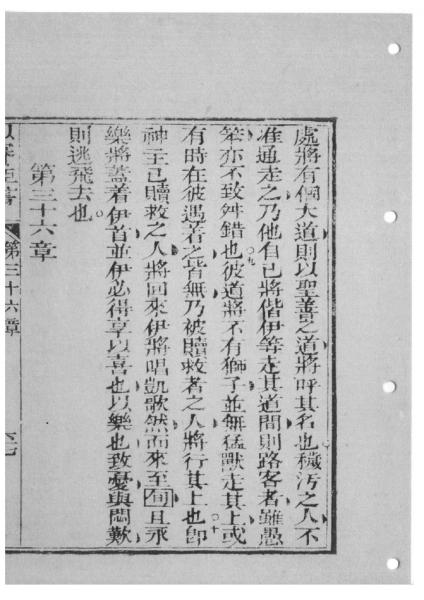 處將有個大道則以聖善之道將呼其名也穢污之人不
准通走之乃他自已將偕伊等走其道間則路客者雖愚
笨亦不致舛錯也彼道將不有獅子並無猛獸走其上或
有時在彼遇着之皆無乃被贖救者之人將行其上也卽
神主已贖救之人將回來伊將唱凱歌然而來至旬且永
樂將蓋着伊首並伊必得享以喜也以樂也致憂與悶歎
則逃飛去也
第三十六章
第三十六章